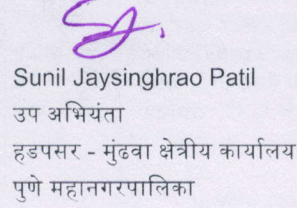 Sunil Jaysinghrao Patil
उप अभियंता
हडपसर - मुंढवा क्षेत्रीय कार्यालय
पुणे महानगरपालिका